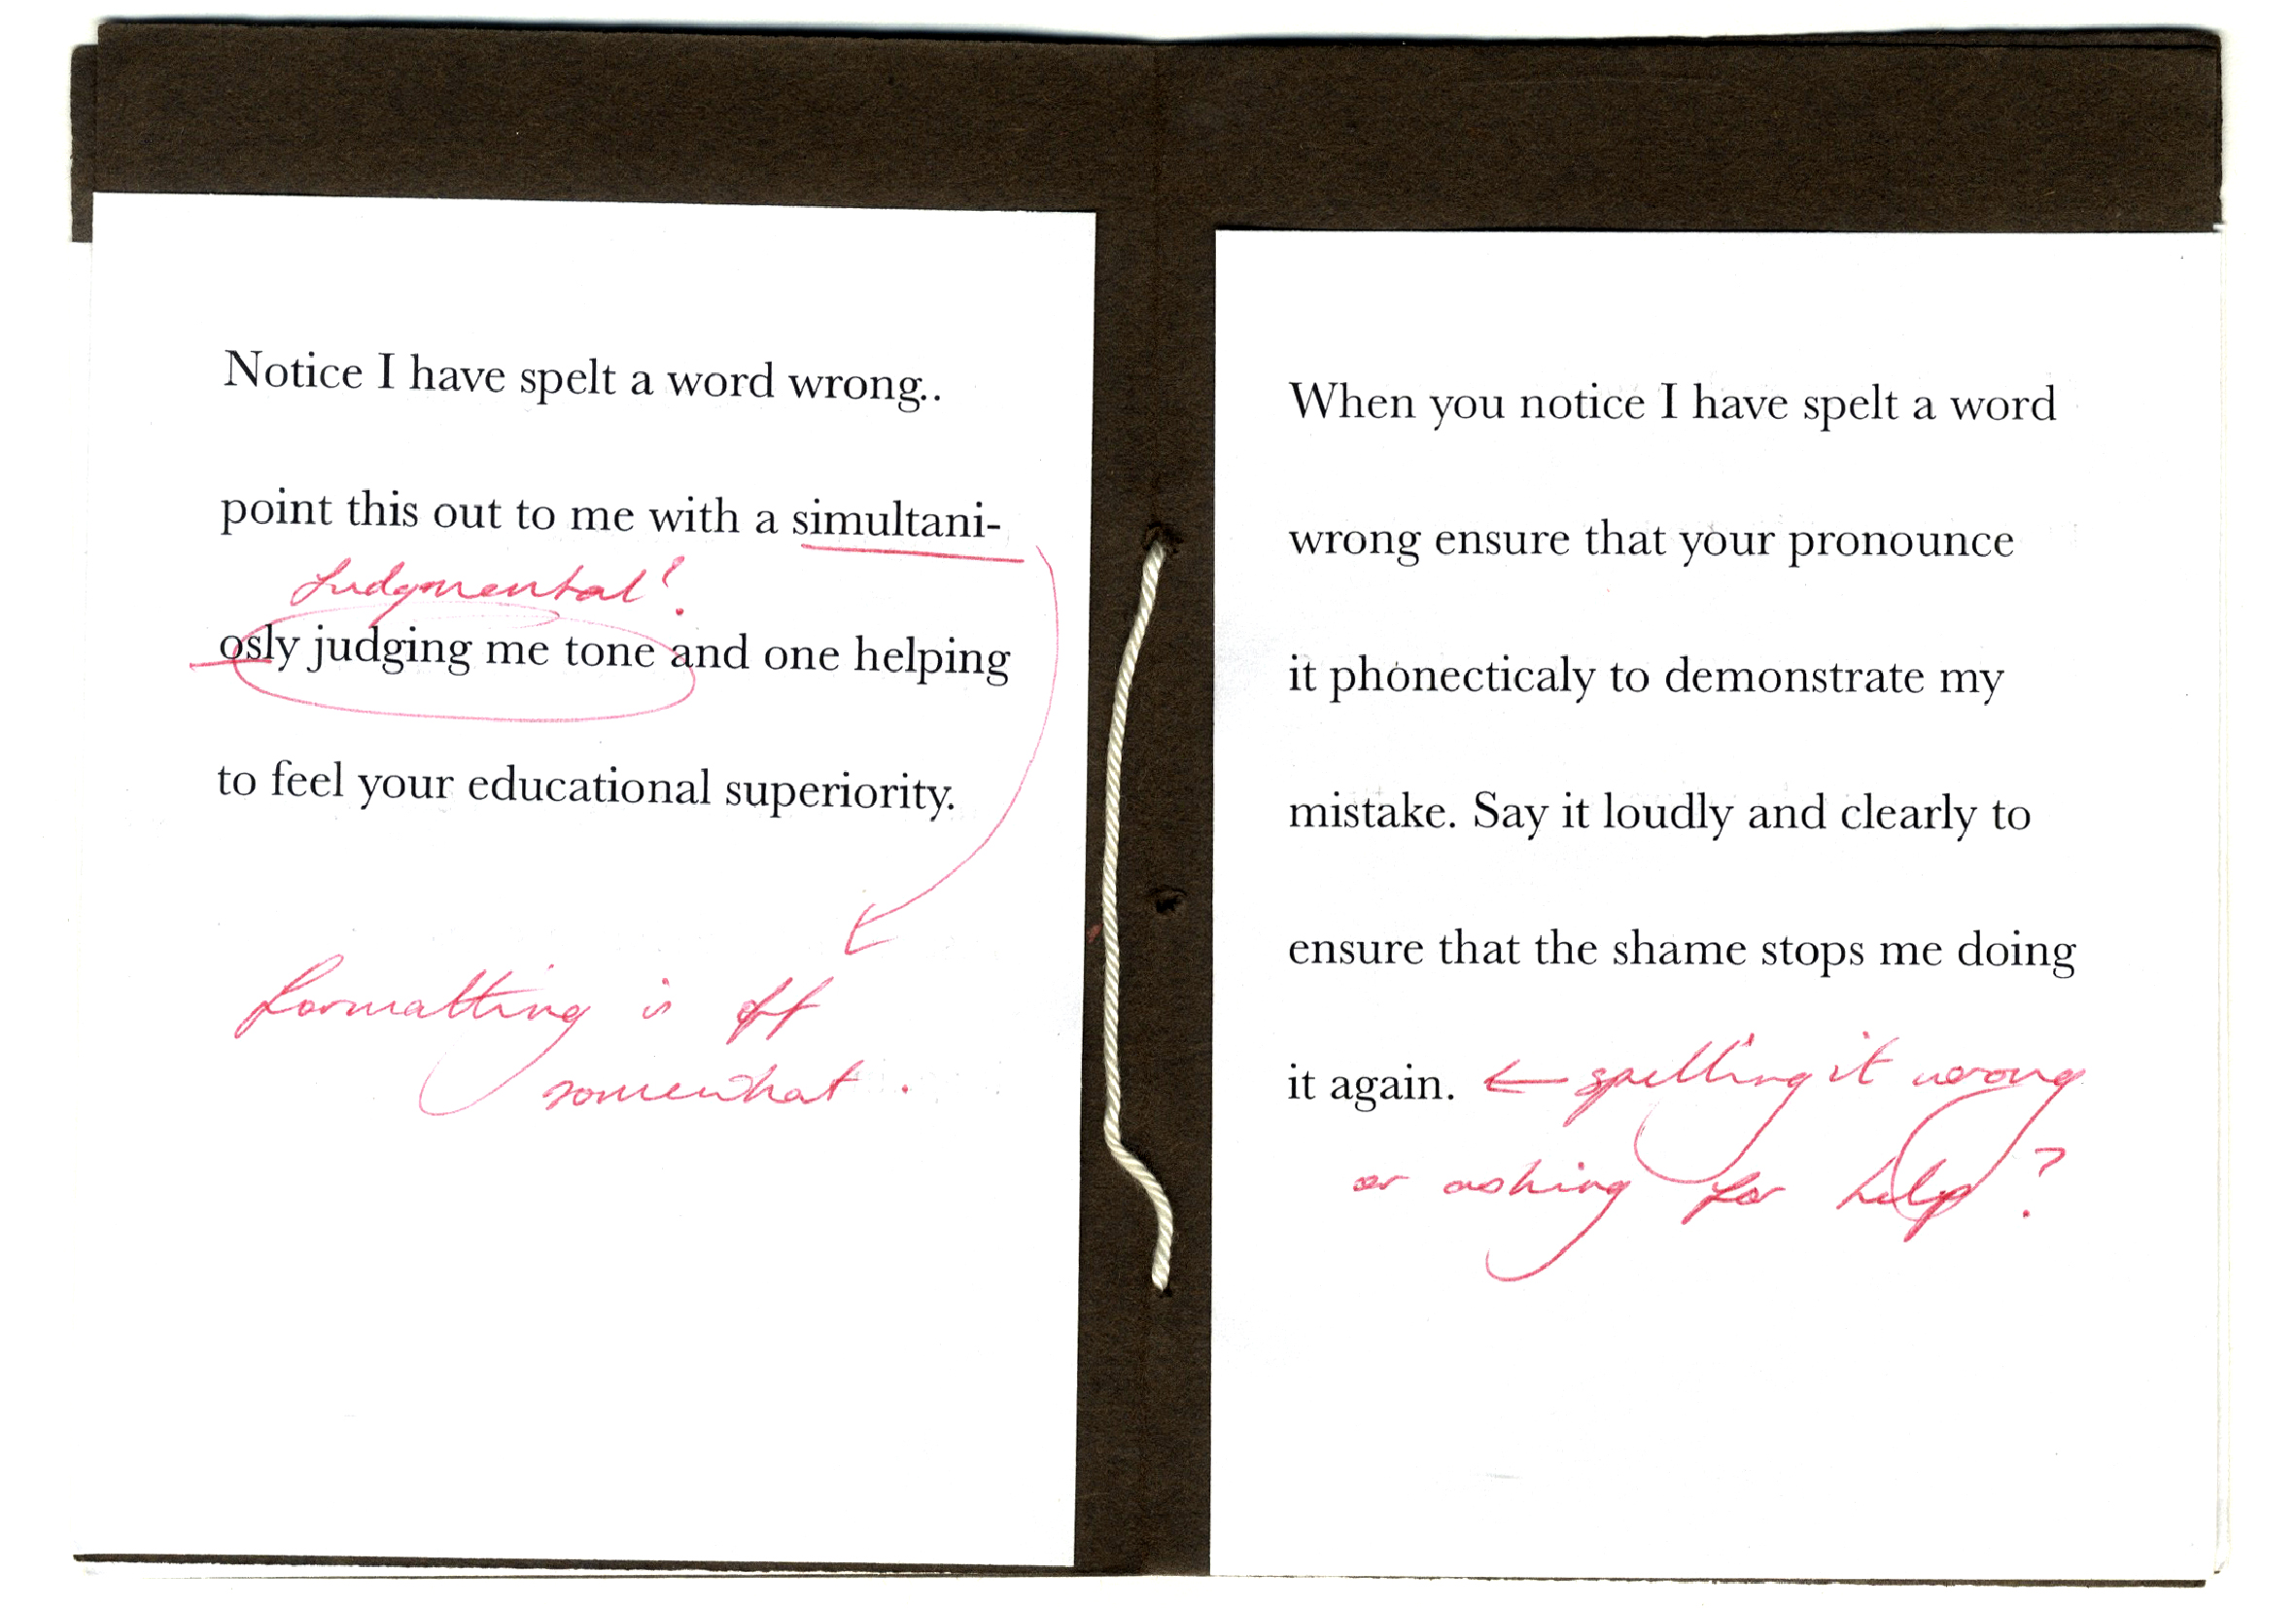 Notice I have spelt a word wrong..
point this out to me with a simultani-
Judgmental?
osly judging me tone and one helping
to feel your educational superiority.
formatting is off
somewhat.
When you notice I have spelt a word
wrong ensure that your pronounce
it phonecticaly to demonstrate my
mistake. Say it loudly and clearly to
ensure that the shame stops me doing
it again. ← spelling it wrong
or asking for help?